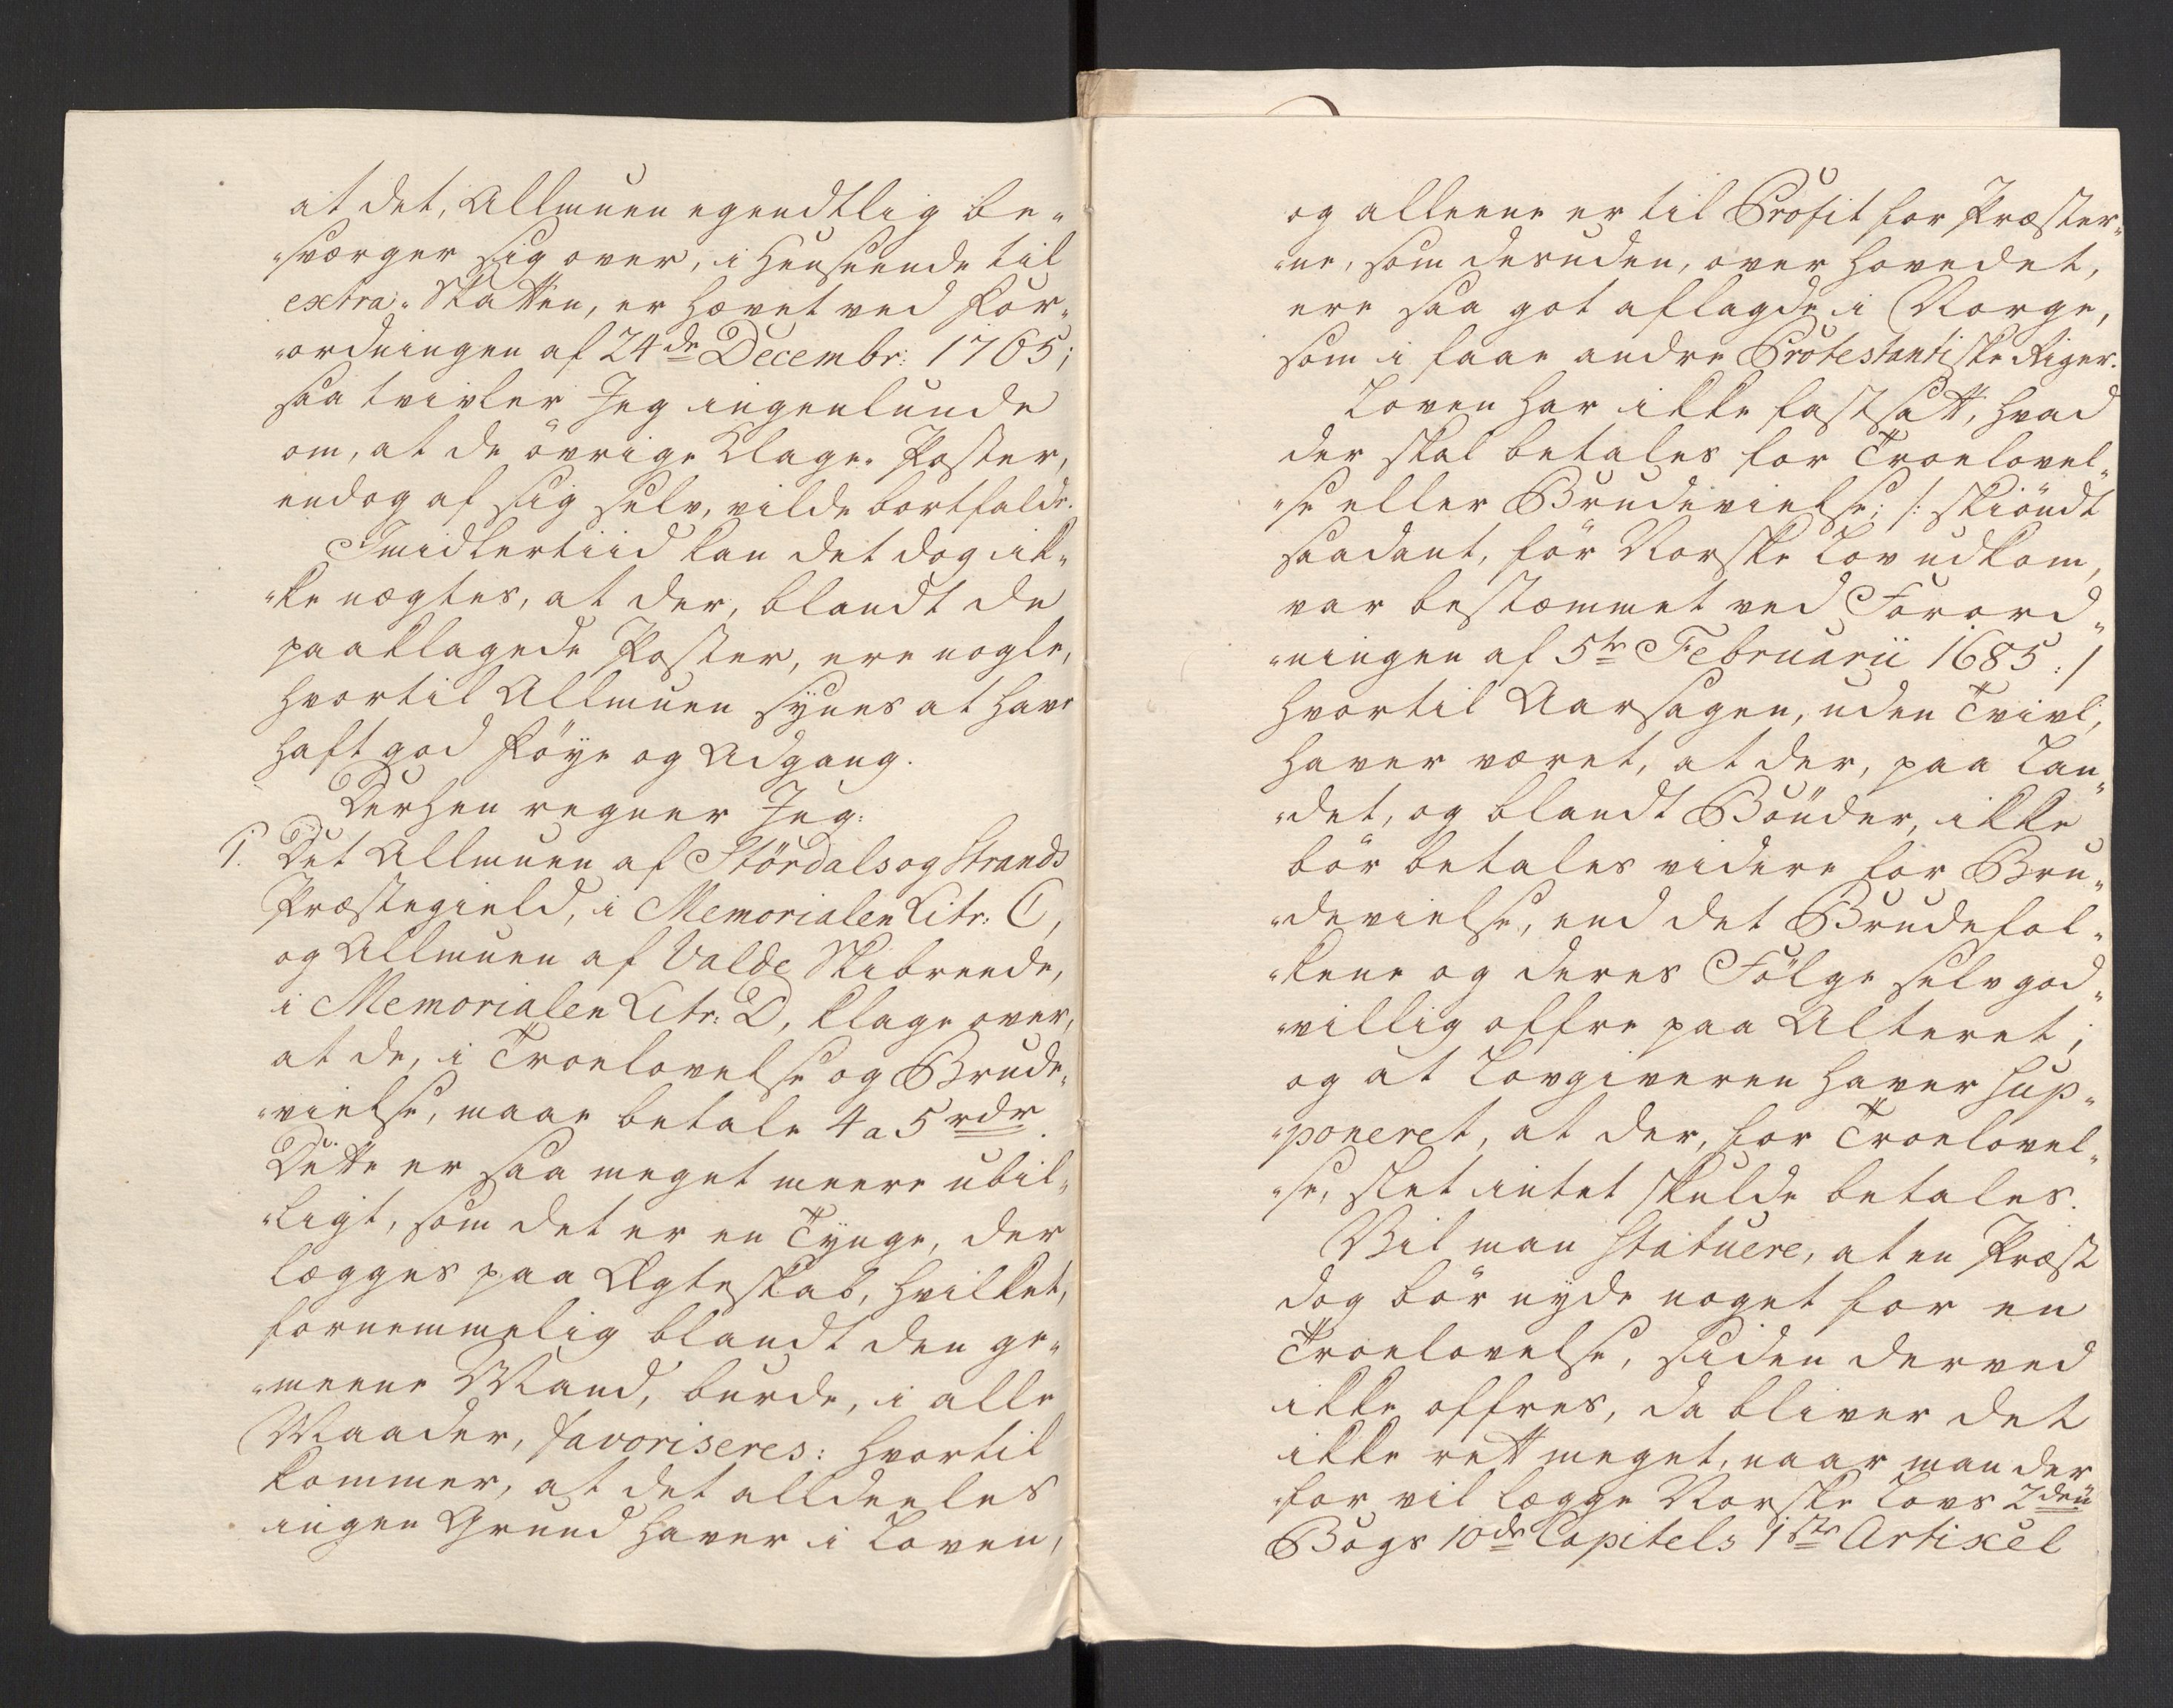 at det, Allmuen egendtlig be„
„sværger sig over, i Henseende til
extra-Skatten, er hævet ved For„
„ordningen af 24de Decembr: 1765;
saa tvivler Jeg ingenlunde
om, at de övrige Klage-Poster,
endog af sig selv, vilde bortfalde.
Imidlertiid kan det dog ik„
„ke nægtes, at der, blandt de
paaklagede Poster, ere nogle,
hvortil Allmuen synes at have
haft god Föye og Adgang.
Derhen regner Jeg:
1. Det Allmuen af Stördals og Strands
Præstegield, i Memorialen Litr: C,
og Allmuen af Valde Skibreede,
i Memorialen Litr: D, klage over,
at de, i Troelovelse og Brude„
„vielse, maae betale 4 a 5 rdr.
Dette er saa meget meere ubil„
„ligt, som det er en Tynge, der
lægges paa Ægteskab, hvilket,
fornemmelig blandt den ge„
„meene Mand, burde, i alle
Maader, favoriseres: hvortil
kommer, at det alldeeles
ingen Grund haver i Loven,
og alleene er til Profit for Præster„
„ne, som desuden, over hovedet,
ere saa got aflagde i Norge,
som i faae andre Protestantiske Riger.
Loven har ikke fastsatt, hvad
der skal betales for Troelovel„
„se eller Brudevielse; /: skiöndt
saadant, för Norske Lov udkom,
var bestæmmet ved Forord„
„ningen af 5te Februarii 1685 :/
hvortil Aarsagen, uden Tvivl,
haver været, at der, paa Lan„
„det, og blandt Bönder, ikke
bör betales videre for Bru„
„devielse, end det Brudefol„
„kene og deres Fölge selv god„
„villig offre paa Alteret;
og at Lovgiveren haver sup„
„poneret, at der, for Troelovel„
„se, slet intet skulde betales.
Vil man statuere, at en Præst
dog bör nyde noget for en
Troelovelse, siden derved
ikke offres, da bliver det
ikke rett meget, naar man der„
„for vil lægge Norske Lovs 2den
Bogs 10de Capitels 1ste Artikel